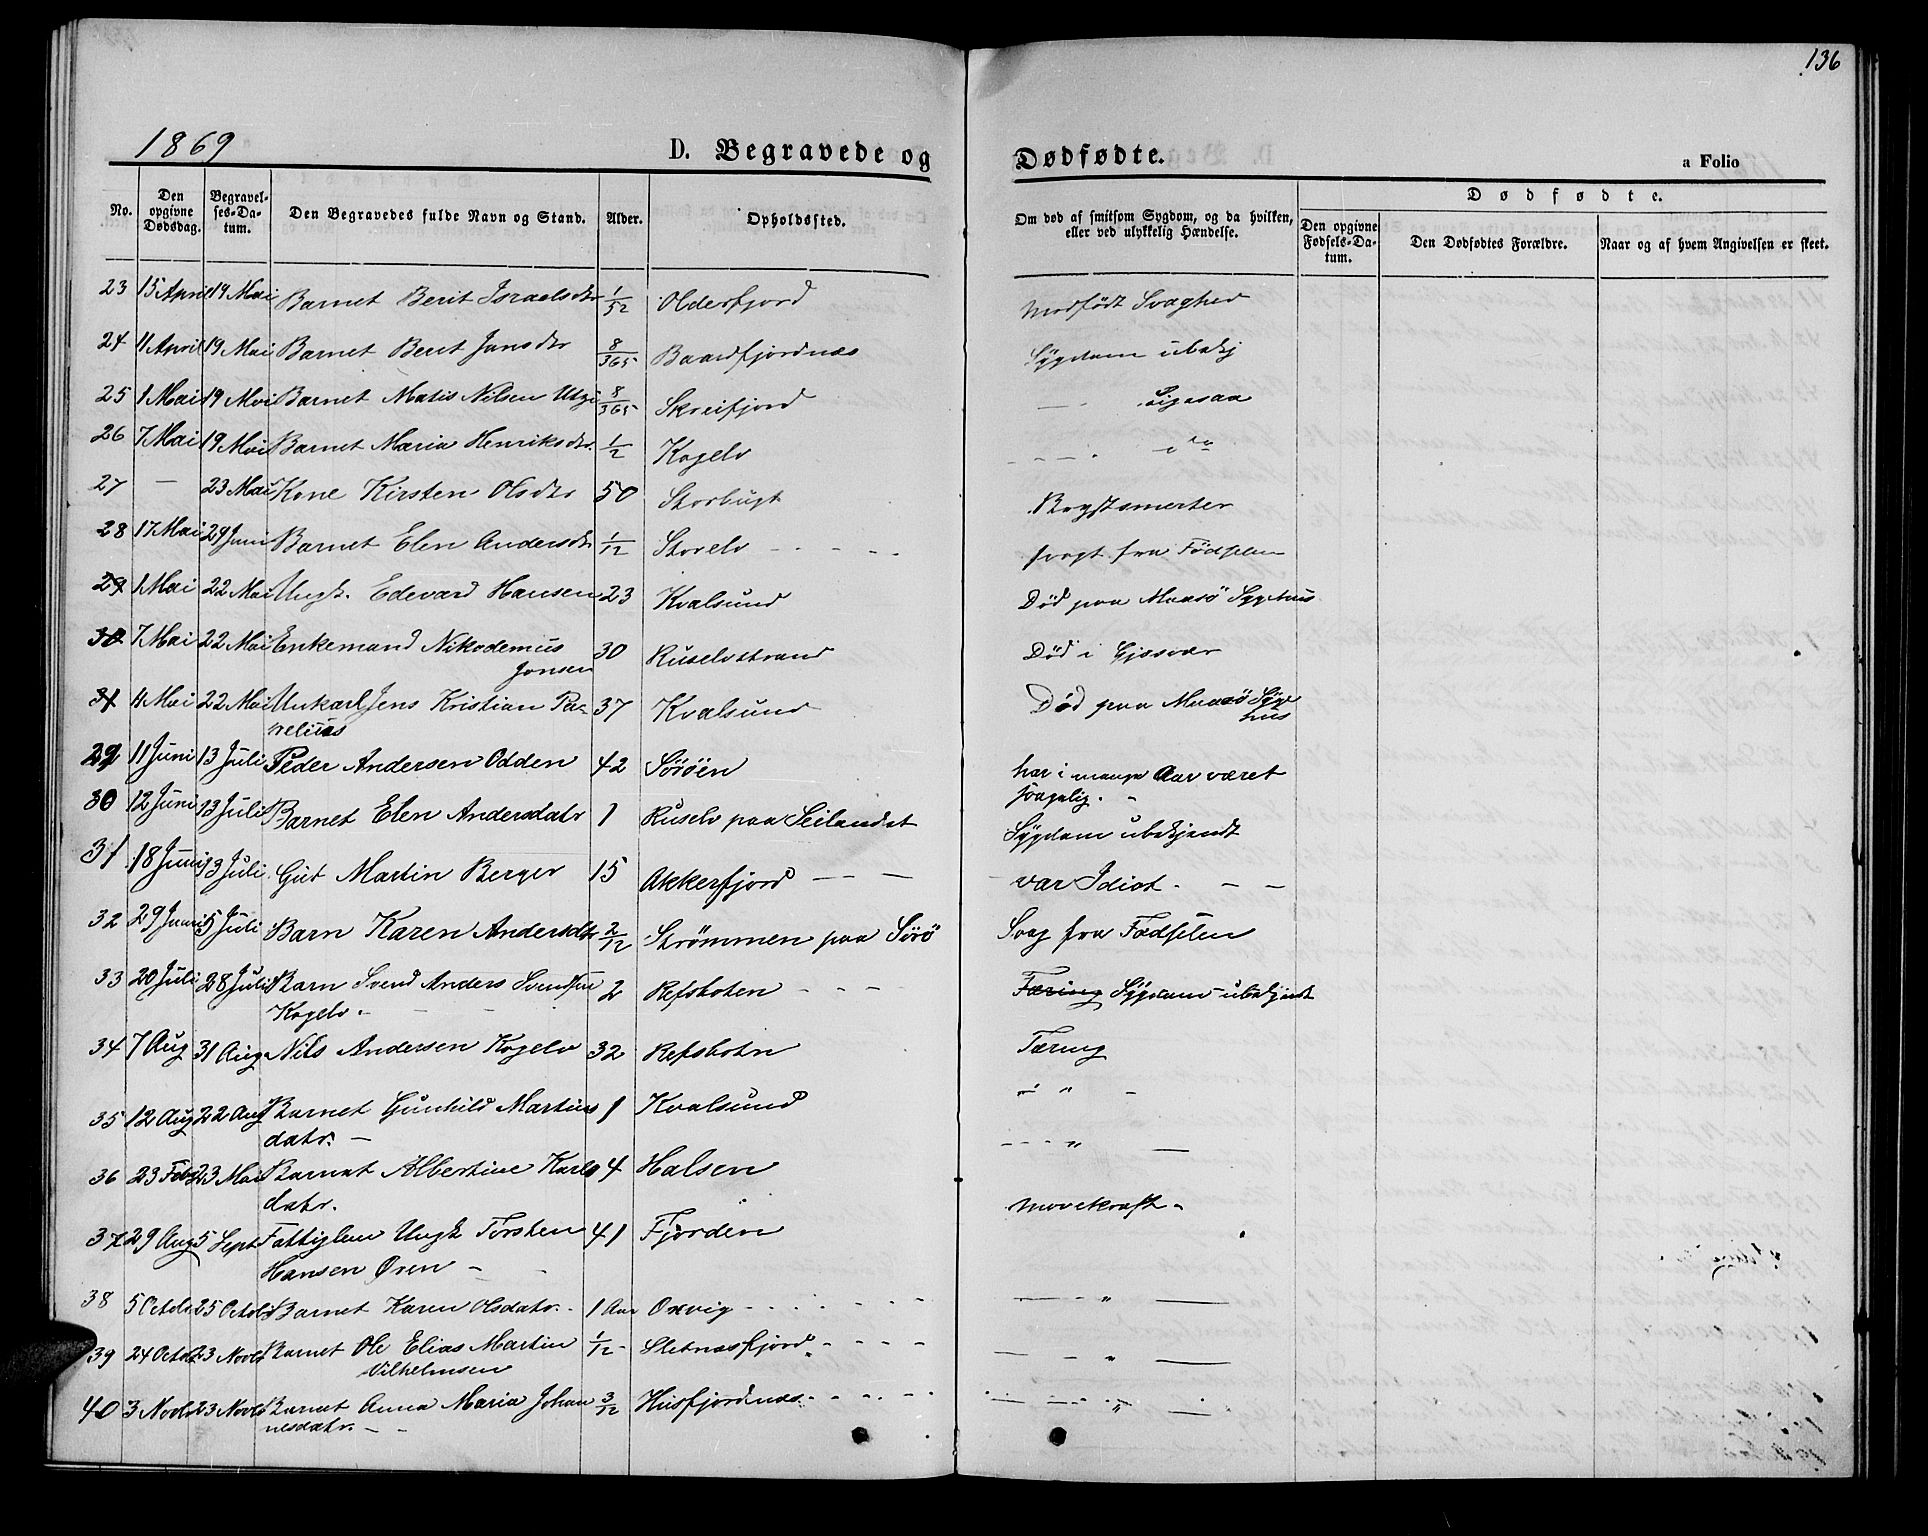 136
1869
D. Begravede og Dødfødte.
a Folio
No.
Den opgivne Dødsdag.
Begravelses-Datum.
Den Begravedes fulde Navn og Stand.
Alder.
Opholdssted.
Om død af smitsom Sygdom, og da hvilken, eller ved ulykkelig Hændelse.
Dødfødte.
Den opgivne Fødsels-Datum.
Den Dødfødtes Forældre.
Naar og af hvem Angivelsen er skeet.
23 15 April 19 Mai Barnet Berit Israelsdtr 1/52 Olderfjord Medfödt Svaghed
24 11 April 19 Mai Barnet Berit Jansdtr 8/365 Baardfjordnæs Sygdom ubekj
25 1 Mai 19 Mai Barnet Matis Nilsen Utsi 8/365 Skreifjord — Ligesaa
26 7 Mai 19 Mai Barnet Maria Henriksdtr. 1/2 Kogelv
27 — 23 Mai Kone Kirsten Olsdtr 50 Storbugt Brystsmerter
28 17 Mai 29 Juni Barnet Elen Andersdtr 1/12 Storelv - - - - svagt fra Födselen
29 1 Mai 22 Mai Ungk. Edevard Hansen 23 Kvalsund Död paa Maasö Sygehus
30 7 Mai 22 Mai Enkemand Nikodemus
Jonsen 30 Ruselvstrand Död i Gjesvær
31 4 Mai 22 Mai Unkarl Jens Kristian Pa-
velius 37 Kvalsund Död paa Maasö Syge
hus
29 11 Juni 13 Juli Peder Andersen Odden 42 Söröen har i mange Aar været
svagelig. -
30 12 Juni 13 Juli Barnet Elen Andersdatr 1 Ruselv paa Seilandet Sygdom ubekjendt
31 18 Juni 13 Juli Gut Martin Berger 15 Akkerfjord — — var Idiot. - - -
32 29 Juni 5 Juli Barn Karen Andersdtr 2/12 Strömmen paa Sörö Svag fra Fødselen
33 20 Juli 28 Juli Barn Svend Anders Svendsen
Kogelv. - 2 Refsboten - - - Tæring Sygdom ubekjendt
34 7 Aug 31 Aug Nils Andersen Kogelv 32 Refsbotn Tæring
35 12 Aug 22 Aug Barnet Gunhild Martins
datr. — 1 Kvalsund - " -
36 23 Feb 23 Mai Barnet Albertine Karls
datr. 4 Halsen - - - " —
37 29 Aug 5 Sept Fattiglem Ungk Torsten
Hansen Øren - - 41 Fjorden
38 5 Octob 25 Octob Barnet Karen Olsdatr. - 1 Aar Oxvig - - - - — " —
39 24 Octob 23 Novb Barnet Ole Elias Martin
Vilhelmsen 1/12 - Sletnæsfjord - - - - — " —
40 3 Novb 23 Novb Barnet Anna Maria Johan
nesdatr. - - 3/12 Husfjordnæs - - - - — " —